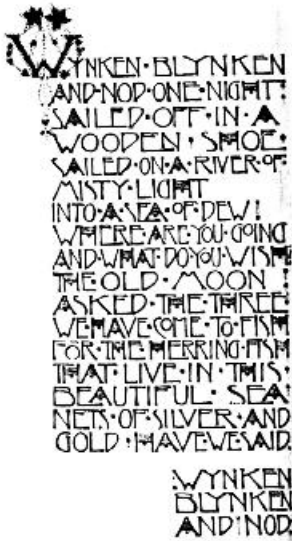 WYNKEN·BLYNKEN
AND·NOD·ONE·NIGHT:
SAILED·OFF·IN·A
WOODEN·SHOE·
SAILED·ON·A·RIVER·OF
MISTY·LIGHT
INTO·A·SEA·OF·DEW!
WHERE·ARE·YOU·GOING
AND·WHAT·DO·YOU·WISH
THE·OLD·MOON!
ASKED·THE·THREE
WE·HAVE·COME·TO·FISH
FOR·THE·HERRING·FISH
THAT·LIVE·IN·THIS·
BEAUTIFUL·SEA
NETS·OF·SILVER·AND
GOLD·HAVE·WE·SAID
WYNKEN
BLYNKEN
AND·NOD